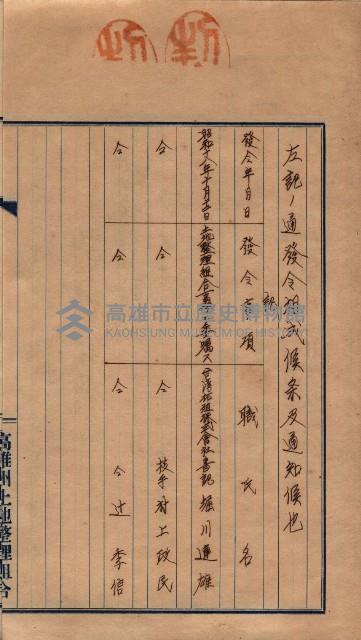 左記ノ通發令相成候条及通知候也
記
發令年月日 發令事項 職氏名
昭和十八年十月十五日 土地整理組合書記ヲ囑託ス 台湾拓殖株式會社書記 堀川道雄
仝 仝 仝 技手 村上政民
仝 仝 仝 辻季信
高雄州土地整理組合
高雄市立歷史博物館
KAOHSIUNG MUSEUM OF HISTORY